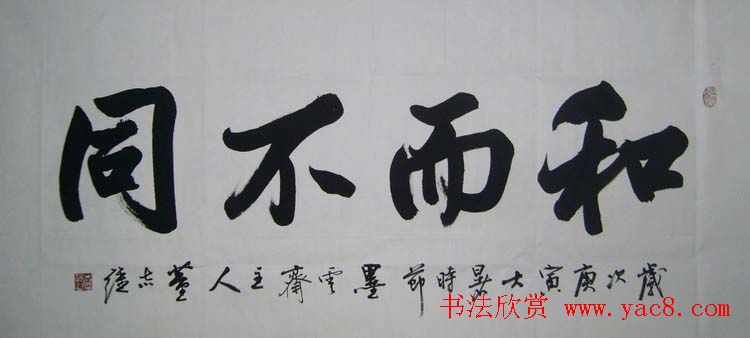 和而不同
歲次庚寅大暑時節墨雲齋主人董志
书法欣赏 www.yac8.com